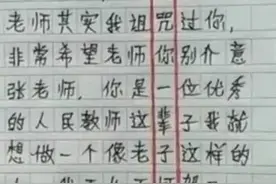 老师其实我诅咒过你,
非常希望老师你别介意
张老师,你是一位优秀
的人民教师这辈子我就
想做一个像老子这样的